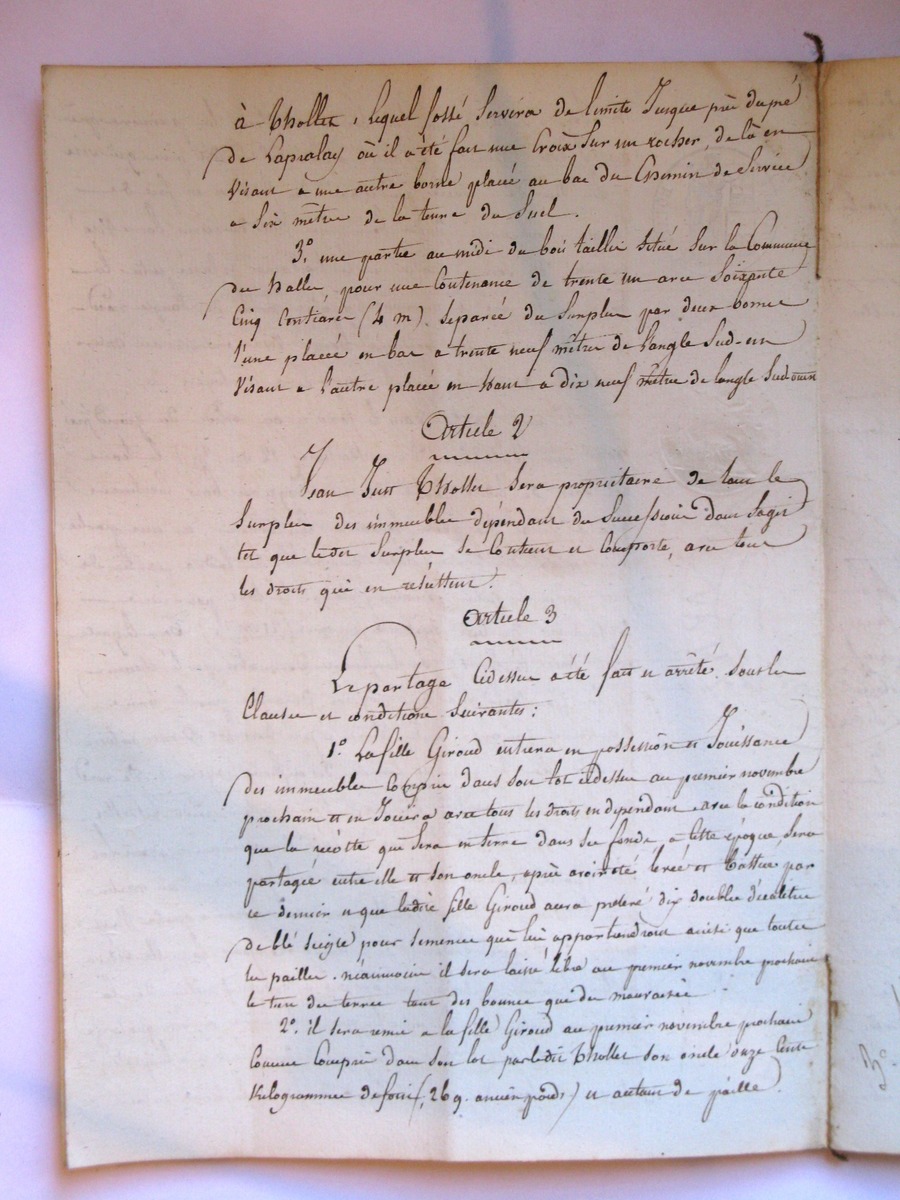 à Thollet, lequel fossé servira de limite Jusque près du pré
de Lapralay où il a été fait une Croix Sur un rocher, de là en
visant a une autre borne placée au bas du Chemin de Service
a Six mètre de la terre du Suel.
3.° une partie au midi du bois taillis situé Sur la Commune
des halles, pour une Contenance de trente un are Soixante
Cinq Centiares (4 m). Separée du Surplus par deux borne
l'une placée en bas a trente neuf mètre de l'angle Sud-en
visant a l'autre placée en haut a dix neuf mètre de langle Sud ouest
Article 2
Jean Just Thollet Sera propriétaire de tout le
Surplus des immeubles dépendant du Succession dont Sagit
tel que ledit Surplus Se Contient et Comporte, avec tous
les droits qui en résultent.
Article 3
Le partage Cidessus a été fait et arrêté Sous les
Clauses et conditions Suivantes:
1° La fille Giroud entrera en possession et Jouissance
des immeubles Compris dans Son lot cidessus au premier novembre
prochain et en Jouira avec tous les droits en dépendant avec la condition
que la récotte que Sera en terre dans Ses fonds a Cette époque, Sera
partagée entre elle et Son oncle, après avoir été levée et Battue par
ce dernier et que ladite fille Giroud aura préleré dix doubles décalitres
de blé Seigle pour Semence que lui appartiendront ainsi que toutes
les pailles. néanmoins il Sera laissé libre au premier novembre prochain
le tiers des terres tant des bonnes que des mauvaises
2° il Sera remis a la fille Giroud au premier novembre prochain
Comme Compris dans Son lot par ledit Thollet Son oncle onze Cents
Kilogrammes de foin (26 q. ancien poids) et autant de paille
3°